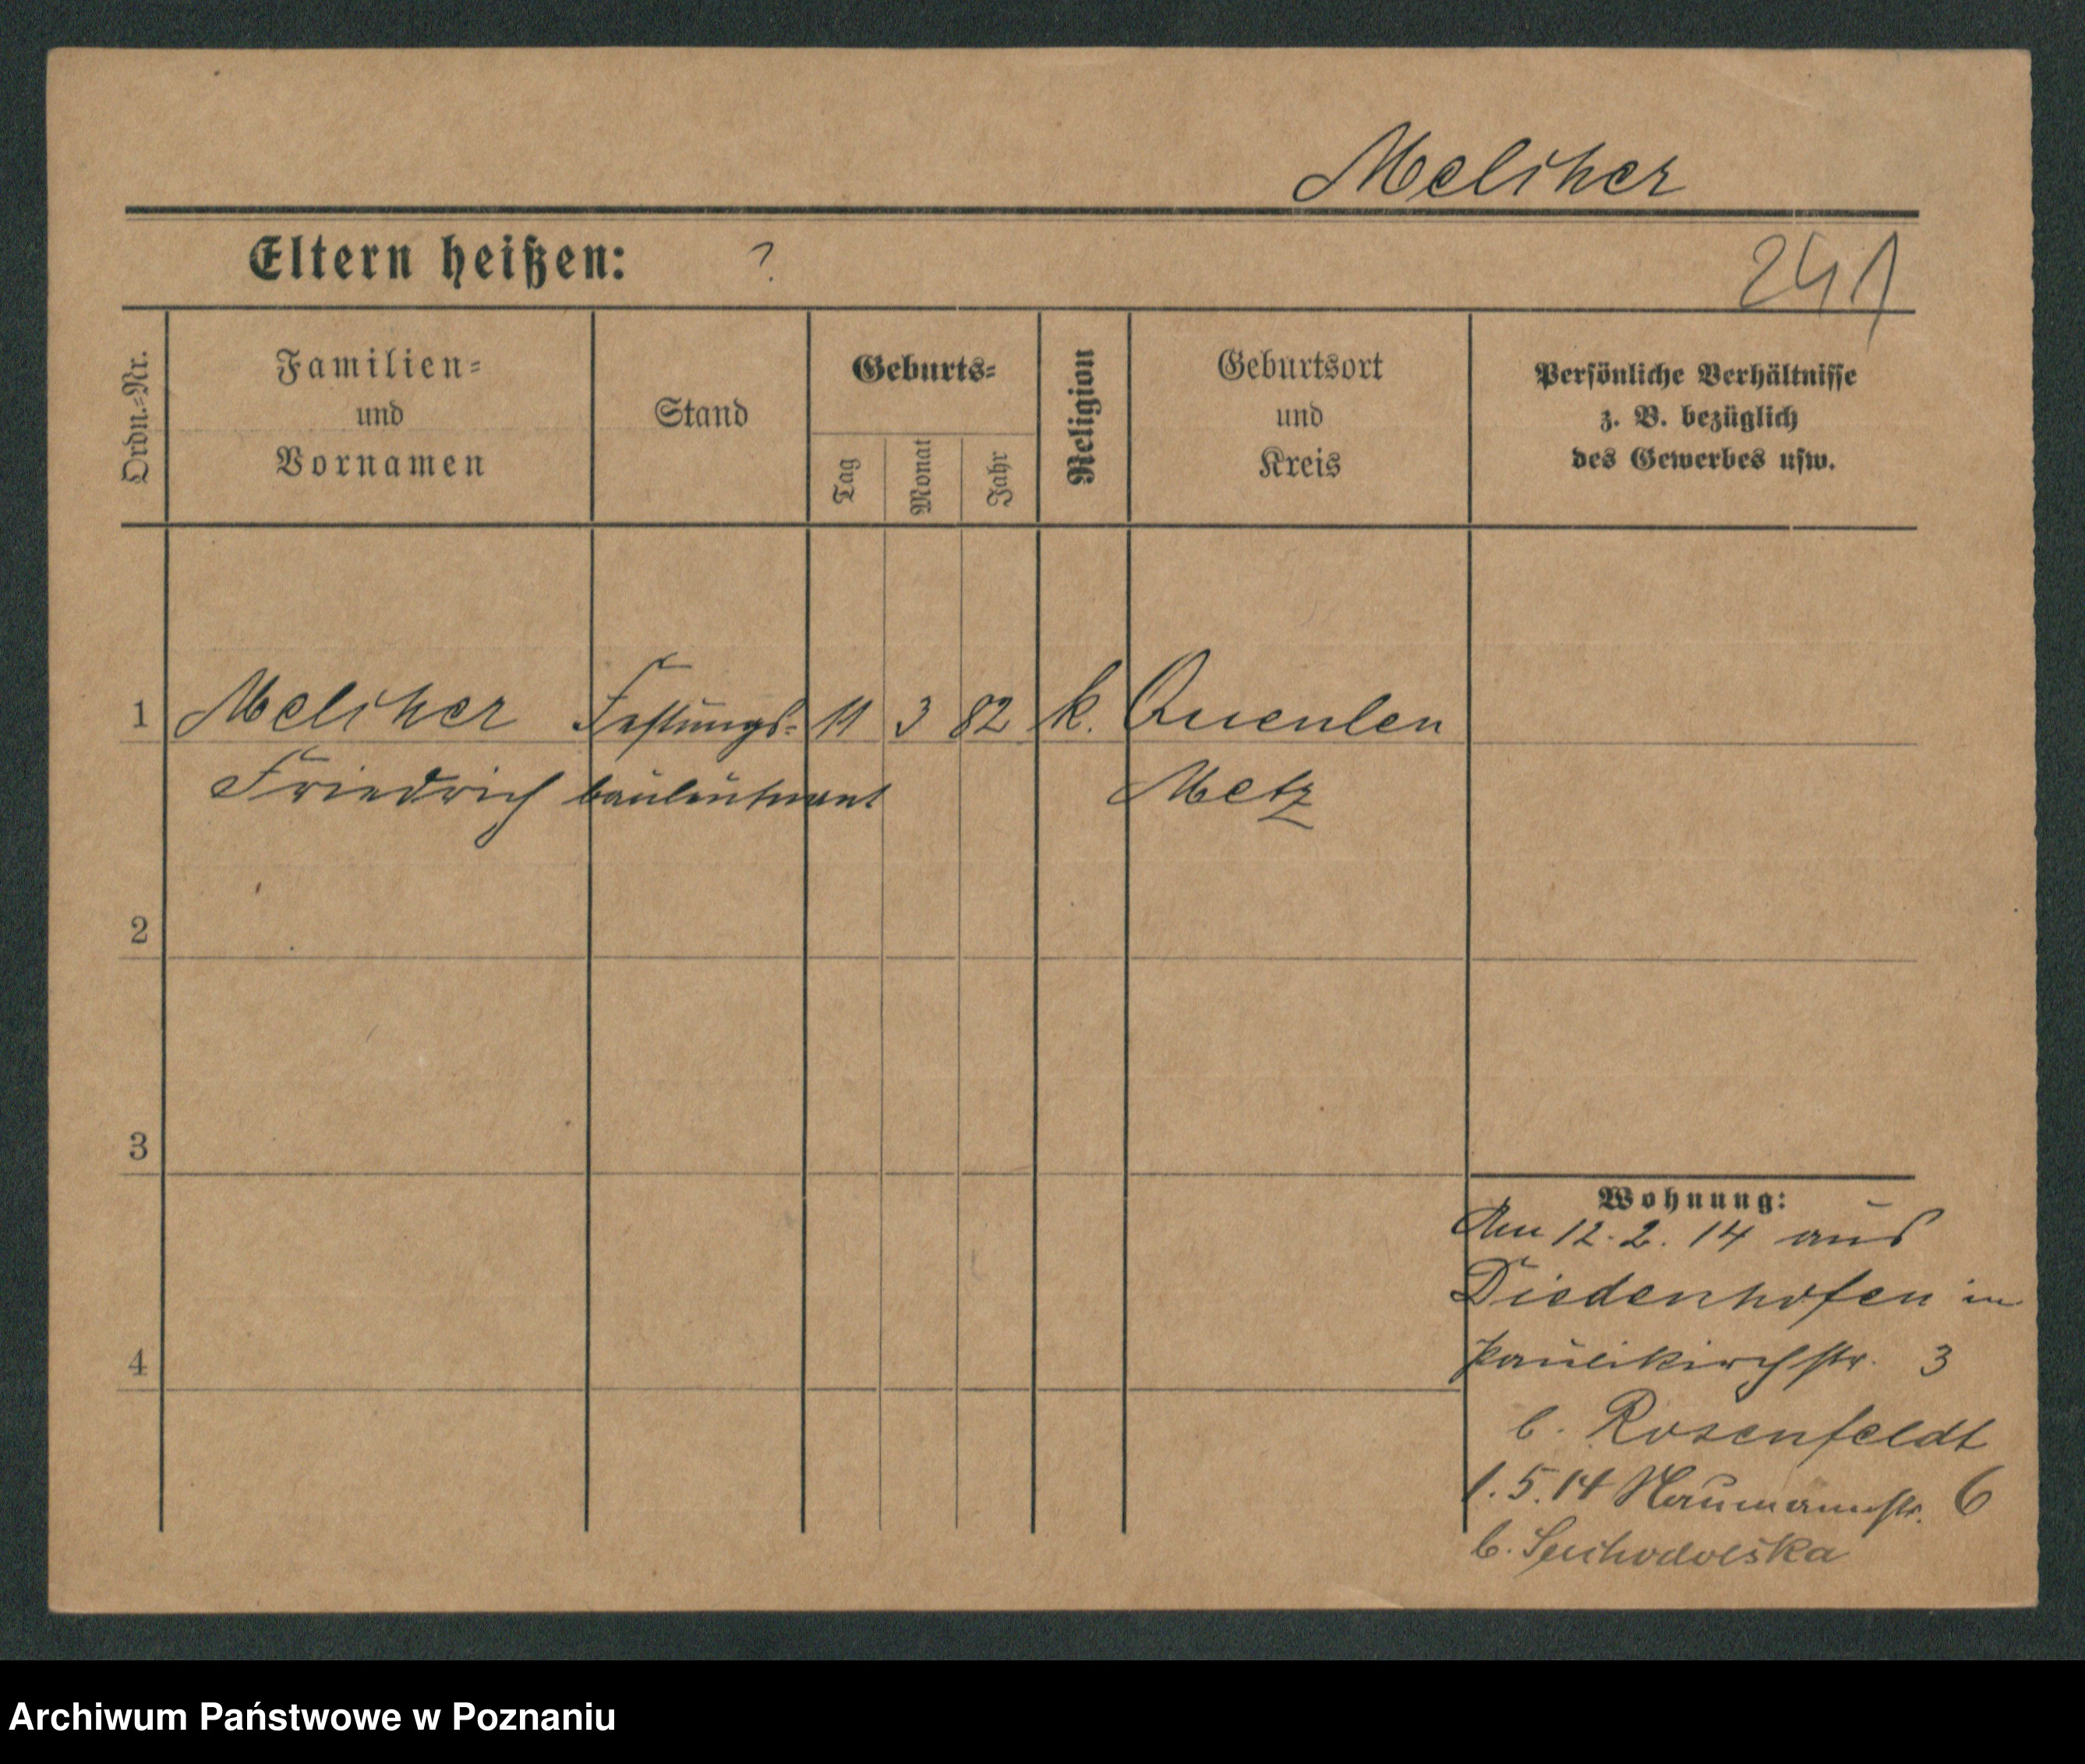 Melcher
Eltern heißen: ?
241
Ordn.-Nr.
Familien-
und
Vornamen
Stand
Geburts-
Tag
Monat
Jahr
Religion
Geburtsort
und
Kreis
Persönliche Verhältnisse
z. B. bezüglich
des Gewerbes usw.
1 Melcher Festungs- 11 3 82 k. Queulen
Friedrich bauleutnant Metz
2
3
4
Wohnung:
Am 12.2.14 aus
Diedenhofen in
Paulikirchstr. 3
b. Rosenfeldt
1.5.14 Naumannstr. 6
b. Suchodolska
Archiwum Państwowe w Poznaniu